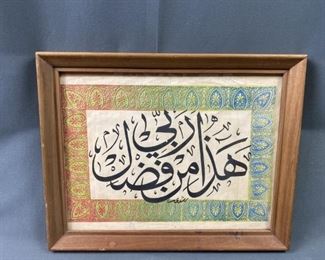 هذا من فضل
ربي